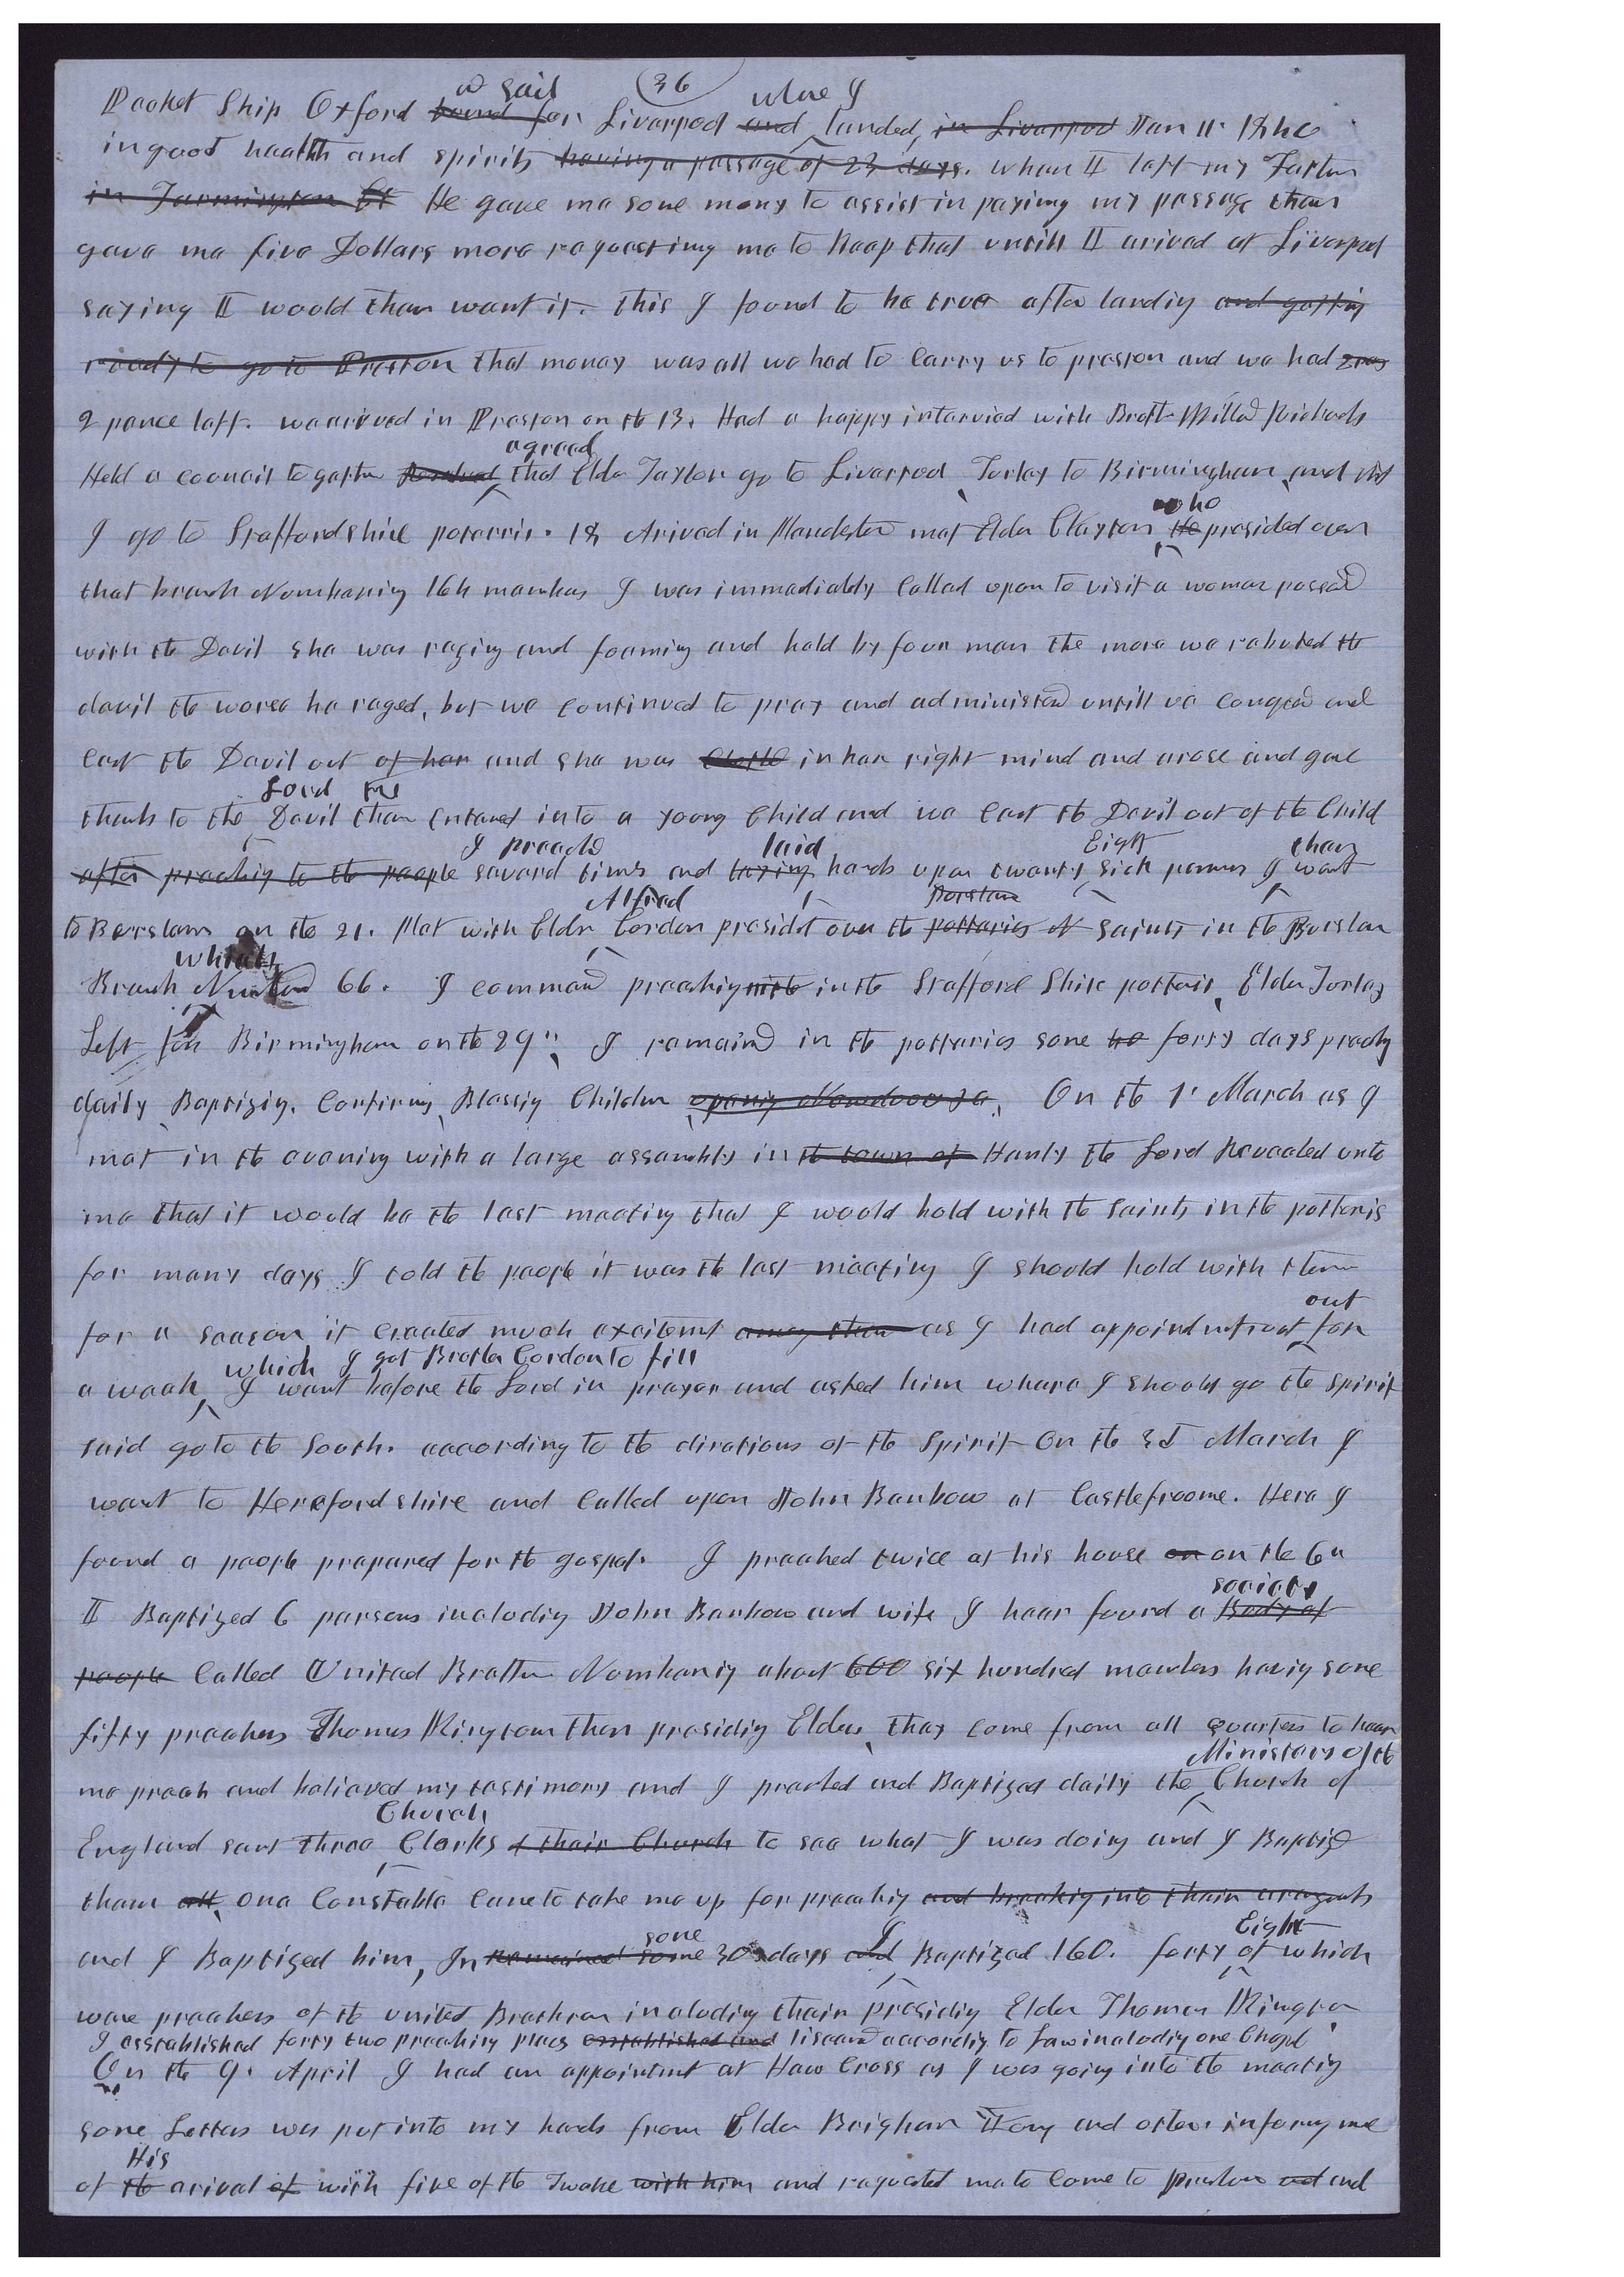 36
& sail where I
Packet Ship Oxford bound for Liverpool and landed, in Liverpool Jan 11 1840
in good health and spirits having a passage of 23 days. when I left my Father
in Farmington Ct He gave me some mony to assist in paying my passage then
gave me five Dollars more requesting me to keep that untill I arived at Liverpool
saying I would then want it. this I found to be true after landing and getting
ready to go to Preston that money was all we had to carry us to preston and we had
2 pence left. we arived in Preston on the 13. Had a happy intervied with Broth Willard Richards
agreed
Held a council together Resolved that Elder Taylor go to Liverpool, Turley to Birmingham, and
who
I go to Staffordshire poteris. 18 Arived in Manchester met Elder Clayton He presided over
that branch Numbering 164 members I was immediately called upon to visit a woman possed
with the Devil she was raging and foaming and held by four men the more we rebuked the
devil the worse he raged, but we continued to pray and administered untill we conqered and
cast the Devil out of her and she was in her right mind and arose and gave
Lord the
thanks to the Devil then entered into a young Child and we cast the Devil out of the Child
I preached laid Eight then
after preaching to the people several times and laying hands upon twenty, sick persons I went
Alfred Borslem
to Burslem on the 21. Met with Elder Cordon presidet over the potteries of saints in the Burslem
which
Branch Numbered 66. I commened preaching in the Stafford Shire potteris, Elder Turley
Left for Birmingham on the 29", I remained in the potteries some 40 forty days preachg
daily, Baptizing, Confirming, Blessing Children opening New doors &c. On the 1st March as I
met in the evening with a large assembly in the town of Hanly the Lord Revealed unto
me that it would be the last meeting that I would hold with the saints in the potteris
for many days I told the people it was the last meeting I should hold with them
out
for a season it created much excitemt among them as I had appointmt out for
which I got Brother Cordon to fill
a week I went before the Lord in prayer and asked him where I should go the spirit
said go to the South. according to the directions of the Spirit On the 3d March I
went to Herefordshire and called upon John Benbow at Castlefroome. Here I
found a people prepared for the gospel. I preached twice at his house on on the 6th
society
I Baptized 6 persons including John Benbow and wife I hear found a Body of
people called United Brethren Numbering about 600 six hundred members having some
fifty preachers Thomas Kington then presiding Elder, they come from all quarters to hear
Ministers of the
me preach and believed my testimony and I preached and Baptized daily the Church of
Church
England sent three Clerks of their Church to see what I was doing and I Baptized
them all, one Constable came to take me up for preaching and breaking into their
some I Eight
and I Baptized him, In Remained some 30 days and Baptized 160. forty of which
ware preachers of the united Brethren including their presiding Elder Thomas Kington
I esstablished forty two preaching places esstablished and lisened according to Law including one Chapel
On the 9. April I had an appointmt at Haw Cross as I was going into the meeting
some Letters was put into my hands from Elder Brigham Young and others informing me
His
of the arival of with five of the Twelve with him and requested me to come to preston and and